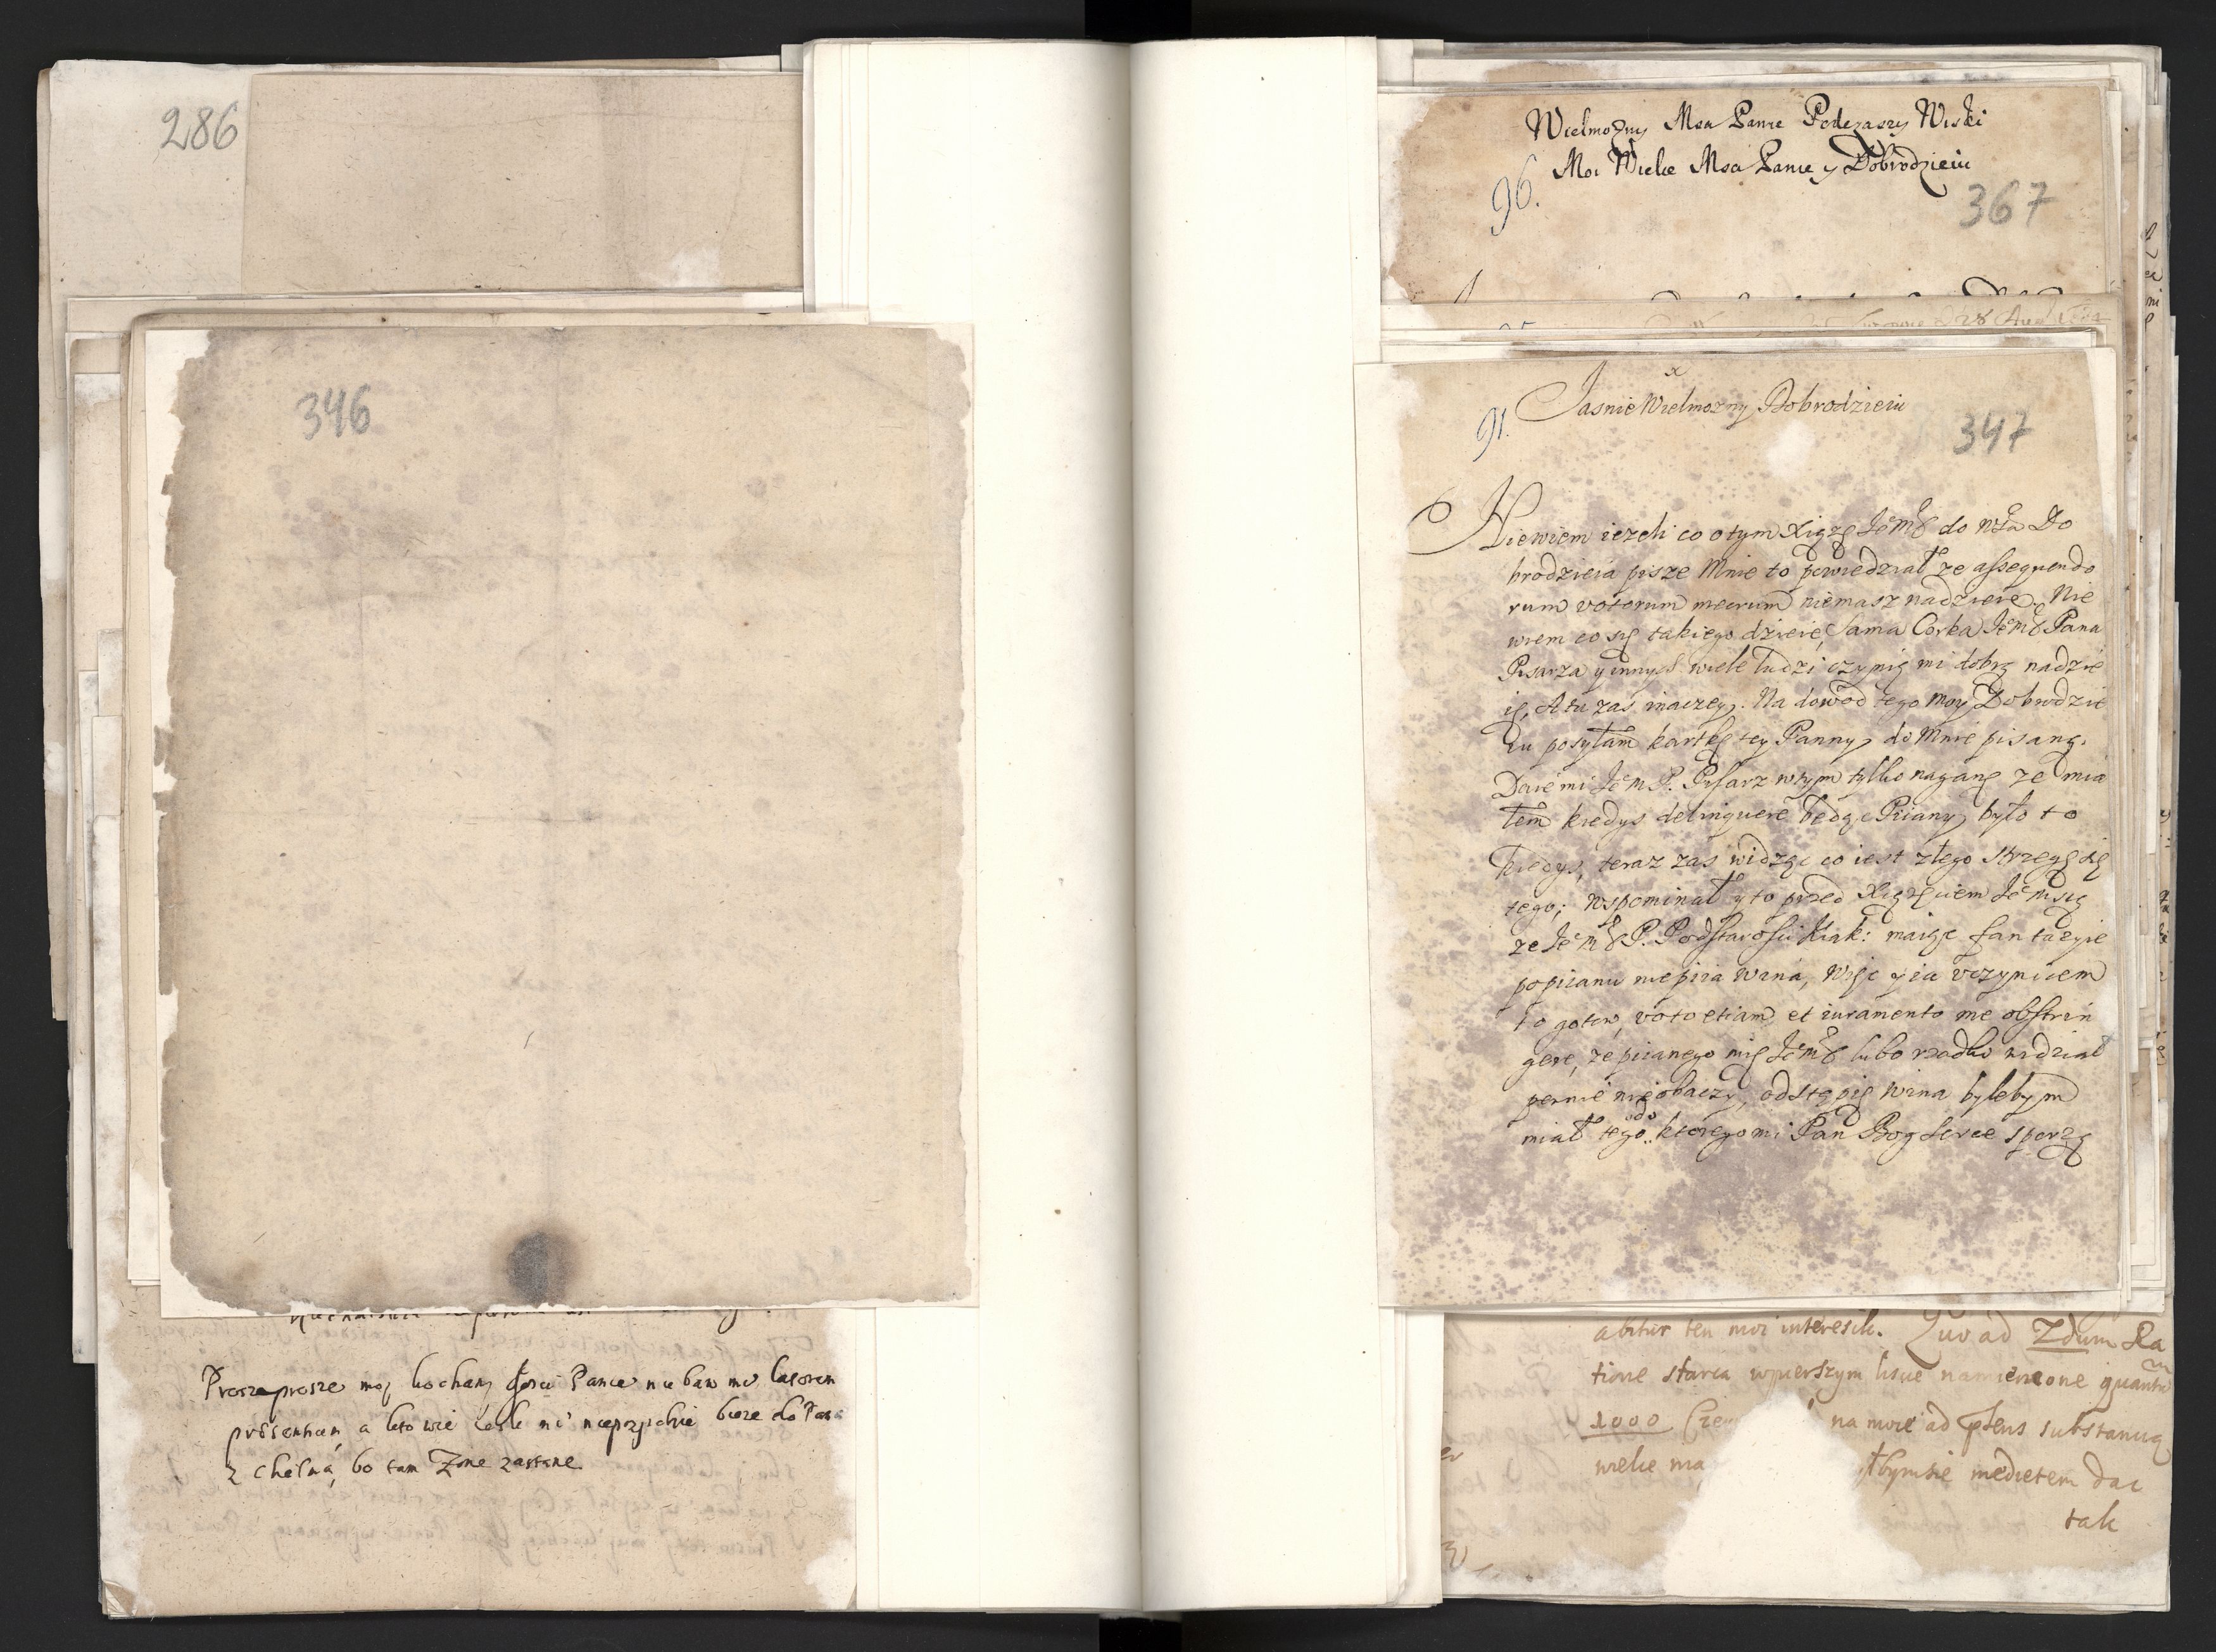 286
346
Prosze prosze moj kochany Panie nie baw mi
a kto wie iesli mi nieprzydzie
z Chełma, bo tam Zone zastane.
Wielmozny Msci Panie Podczaszy
96. Moi Wielce Msci Panie y Dobrodzieiu
367
28 Aug
Jasnie Wielmozny Dobrodzieiu
91.
347
Niewiem iezeli co o tym Xiąże Jemć do Do
brodzieia pisze Mnie to powiedział ze assequendo
rum votorum meorum niemasz nadzieie. Nie
wiem co się takiego dzieie, Sama Corka Jemć Pana
Pisarza y innych wiele ludzi czynią mi dobrą nadzie
ię, A tu zas inaczey. Na dowod tego moy Dobrodzie
iu posyłam kartkę tey Panny do Mnie pisaną.
Daie mi Jem P. Pisarz w tym tylko naganę ze mia
łem kiedys delinquere będąc Piiany, było to
kiedys, teraz zas widząc co iest złego strzegę się
tego; wspominał y to przed Xiążęciem Jemcią
ze Jemć P. Podstarosci Krak: maiąc fantazyie
popiianu niepiia wina, Więc y ia uczynicem
to gotow, voto etiam et iuramento me obstrin
gere, ze piianego mię Jemć lubo rzadko widział
pewnie nieobaczy, odstąpię wina bylebym
miał tego do ktorego mi Pan Bog serce sporzą
abitur ten moi interesik. Quo ad Zdum Ra
tione starca w pierszym liscie namienione
1000 na moie ad substanuą
wielie ma medietem dac
tak